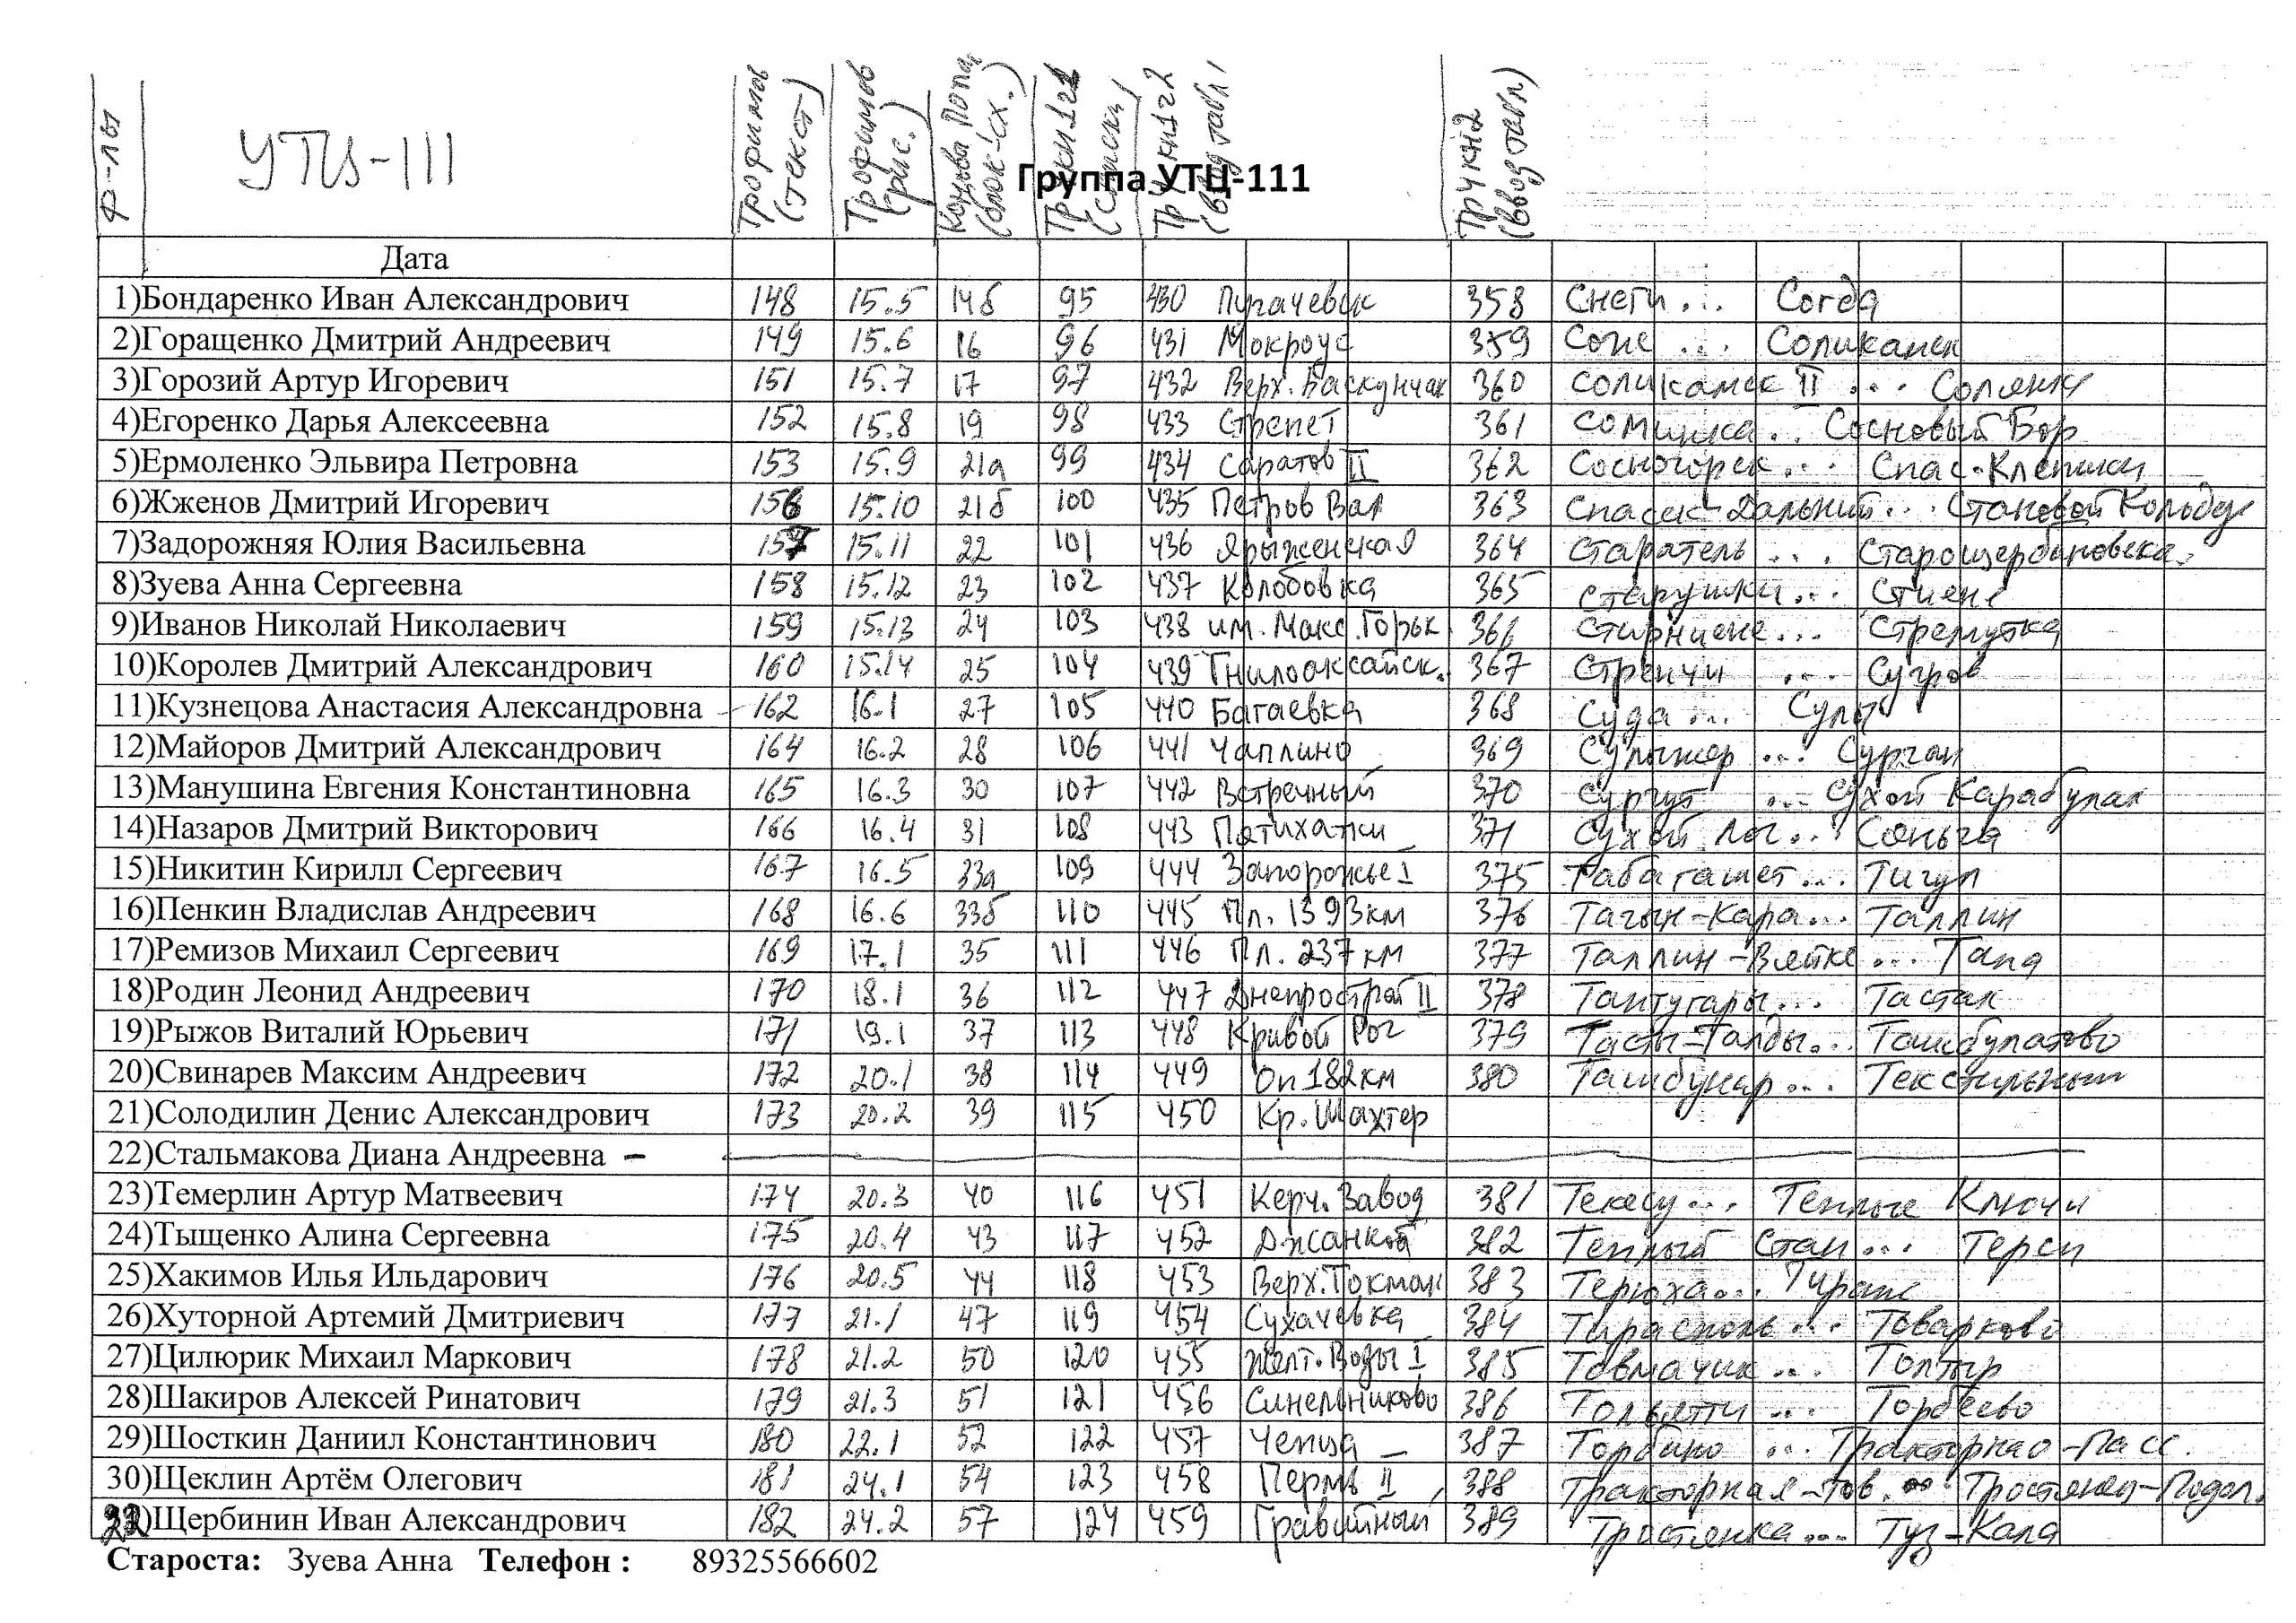 Ф-лы
УТЦ-111
Трофимов (текст)
Трофимов (рис.)
(блок-сх.)
(списки)
ТР4 кн1 г2 (ввод табл)
ТР4 кн2 (ввод табл)
Группа УТЦ-111
Дата
1)Бондаренко Иван Александрович 148 15.5 14б 95 430 Пугачевск 358 Снеги... Согда
2)Горащенко Дмитрий Андреевич 149 15.6 16 96 431 Мокроус 359 Соже ... Соликамск
3)Горозий Артур Игоревич 151 15.7 17 97 432 Верх. Баскунчак 360 Соликамск II ... Солянка
4)Егоренко Дарья Алексеевна 152 15.8 19 98 433 Стрепет 361 Соминка... Сосновый Бор
5)Ермоленко Эльвира Петровна 153 15.9 21а 99 434 Саратов II 362 Сосногорск... Спас-Клепики
6)Жженов Дмитрий Игоревич 156 15.10 21б 100 435 Петров Вал 363 Спасск-Дальний... Становой Колодезь
7)Задорожняя Юлия Васильевна 157 15.11 22 101 436 Ярыженская 364 Старатель ... Старощербиновская
8)Зуева Анна Сергеевна 158 15.12 23 102 437 Колобовка 365 Старушки...
9)Иванов Николай Николаевич 159 15.13 24 103 438 им. Макс. Горьк. 366 Стирниене... Стремутка
10)Королев Дмитрий Александрович 160 15.14 25 104 439 Гнилоаксайск. 367 Стренчи ... Сугров
11)Кузнецова Анастасия Александровна 162 16.1 27 105 440 Багаевка 368 Суда ... Сула
12)Майоров Дмитрий Александрович 164 16.2 28 106 441 Чаплино 369 Сулажгер ... Сурган
13)Манушина Евгения Константиновна 165 16.3 30 107 442 Встречный 370 Сургут ... Сухой Карабулак
14)Назаров Дмитрий Викторович 166 16.4 31 108 443 Пятихатки 371 Сухой Лог... Сяньга
15)Никитин Кирилл Сергеевич 167 16.5 33а 109 444 Запорожье I 375 Табагашет... Тигул
16)Пенкин Владислав Андреевич 168 16.6 33б 110 445 Пл. 1393км 376 Тагын-Кара... Таллин
17)Ремизов Михаил Сергеевич 169 17.1 35 111 446 Пл. 237км 377 Таллин-Вяйке ... Тапа
18)Родин Леонид Андреевич 170 18.1 36 112 447 Днепрострой II 378 Таптугары... Тастак
19)Рыжов Виталий Юрьевич 171 19.1 37 113 448 Кривой Рог 379 Тасты-Талды... Ташбулатово
20)Свинарев Максим Андреевич 172 20.1 38 114 449 Оп 182км 380 Ташбунар... Текстильный
21)Солодилин Денис Александрович 173 20.2 39 115 450 Кр. Шахтер
22)Стальмакова Диана Андреевна –
23)Темерлин Артур Матвеевич 174 20.3 40 116 451 Керч. Завод 381 Текесу... Теплые Ключи
24)Тыщенко Алина Сергеевна 175 20.4 43 117 452 Джанкой 382 Теплый Стан... Терси
25)Хакимов Илья Ильдарович 176 20.5 44 118 453 Верх. Токмак 383 Терюха... Тираж
26)Хуторной Артемий Дмитриевич 177 21.1 47 119 454 Сухачевка 384 Тирасполь ... Товарково
27)Цилюрик Михаил Маркович 178 21.2 50 120 455 Желт. Воды I 385 Товмачик ... Толтыр
28)Шакиров Алексей Ринатович 179 21.3 51 121 456 Синельниково 386 Тольятти ... Торбеево
29)Шосткин Даниил Константинович 180 22.1 52 122 457 Чепца 387 Торбино ... Тракторная-Пасс.
30)Щеклин Артём Олегович 181 24.1 54 123 458 Пермь II 388 Тракторная-Тов. ... Тростянец-Подол.
)Щербинин Иван Александрович 182 24.2 57 124 459 Гравитный 389 Тростянка... Туз-Кала
Староста: Зуева Анна Телефон : 89325566602